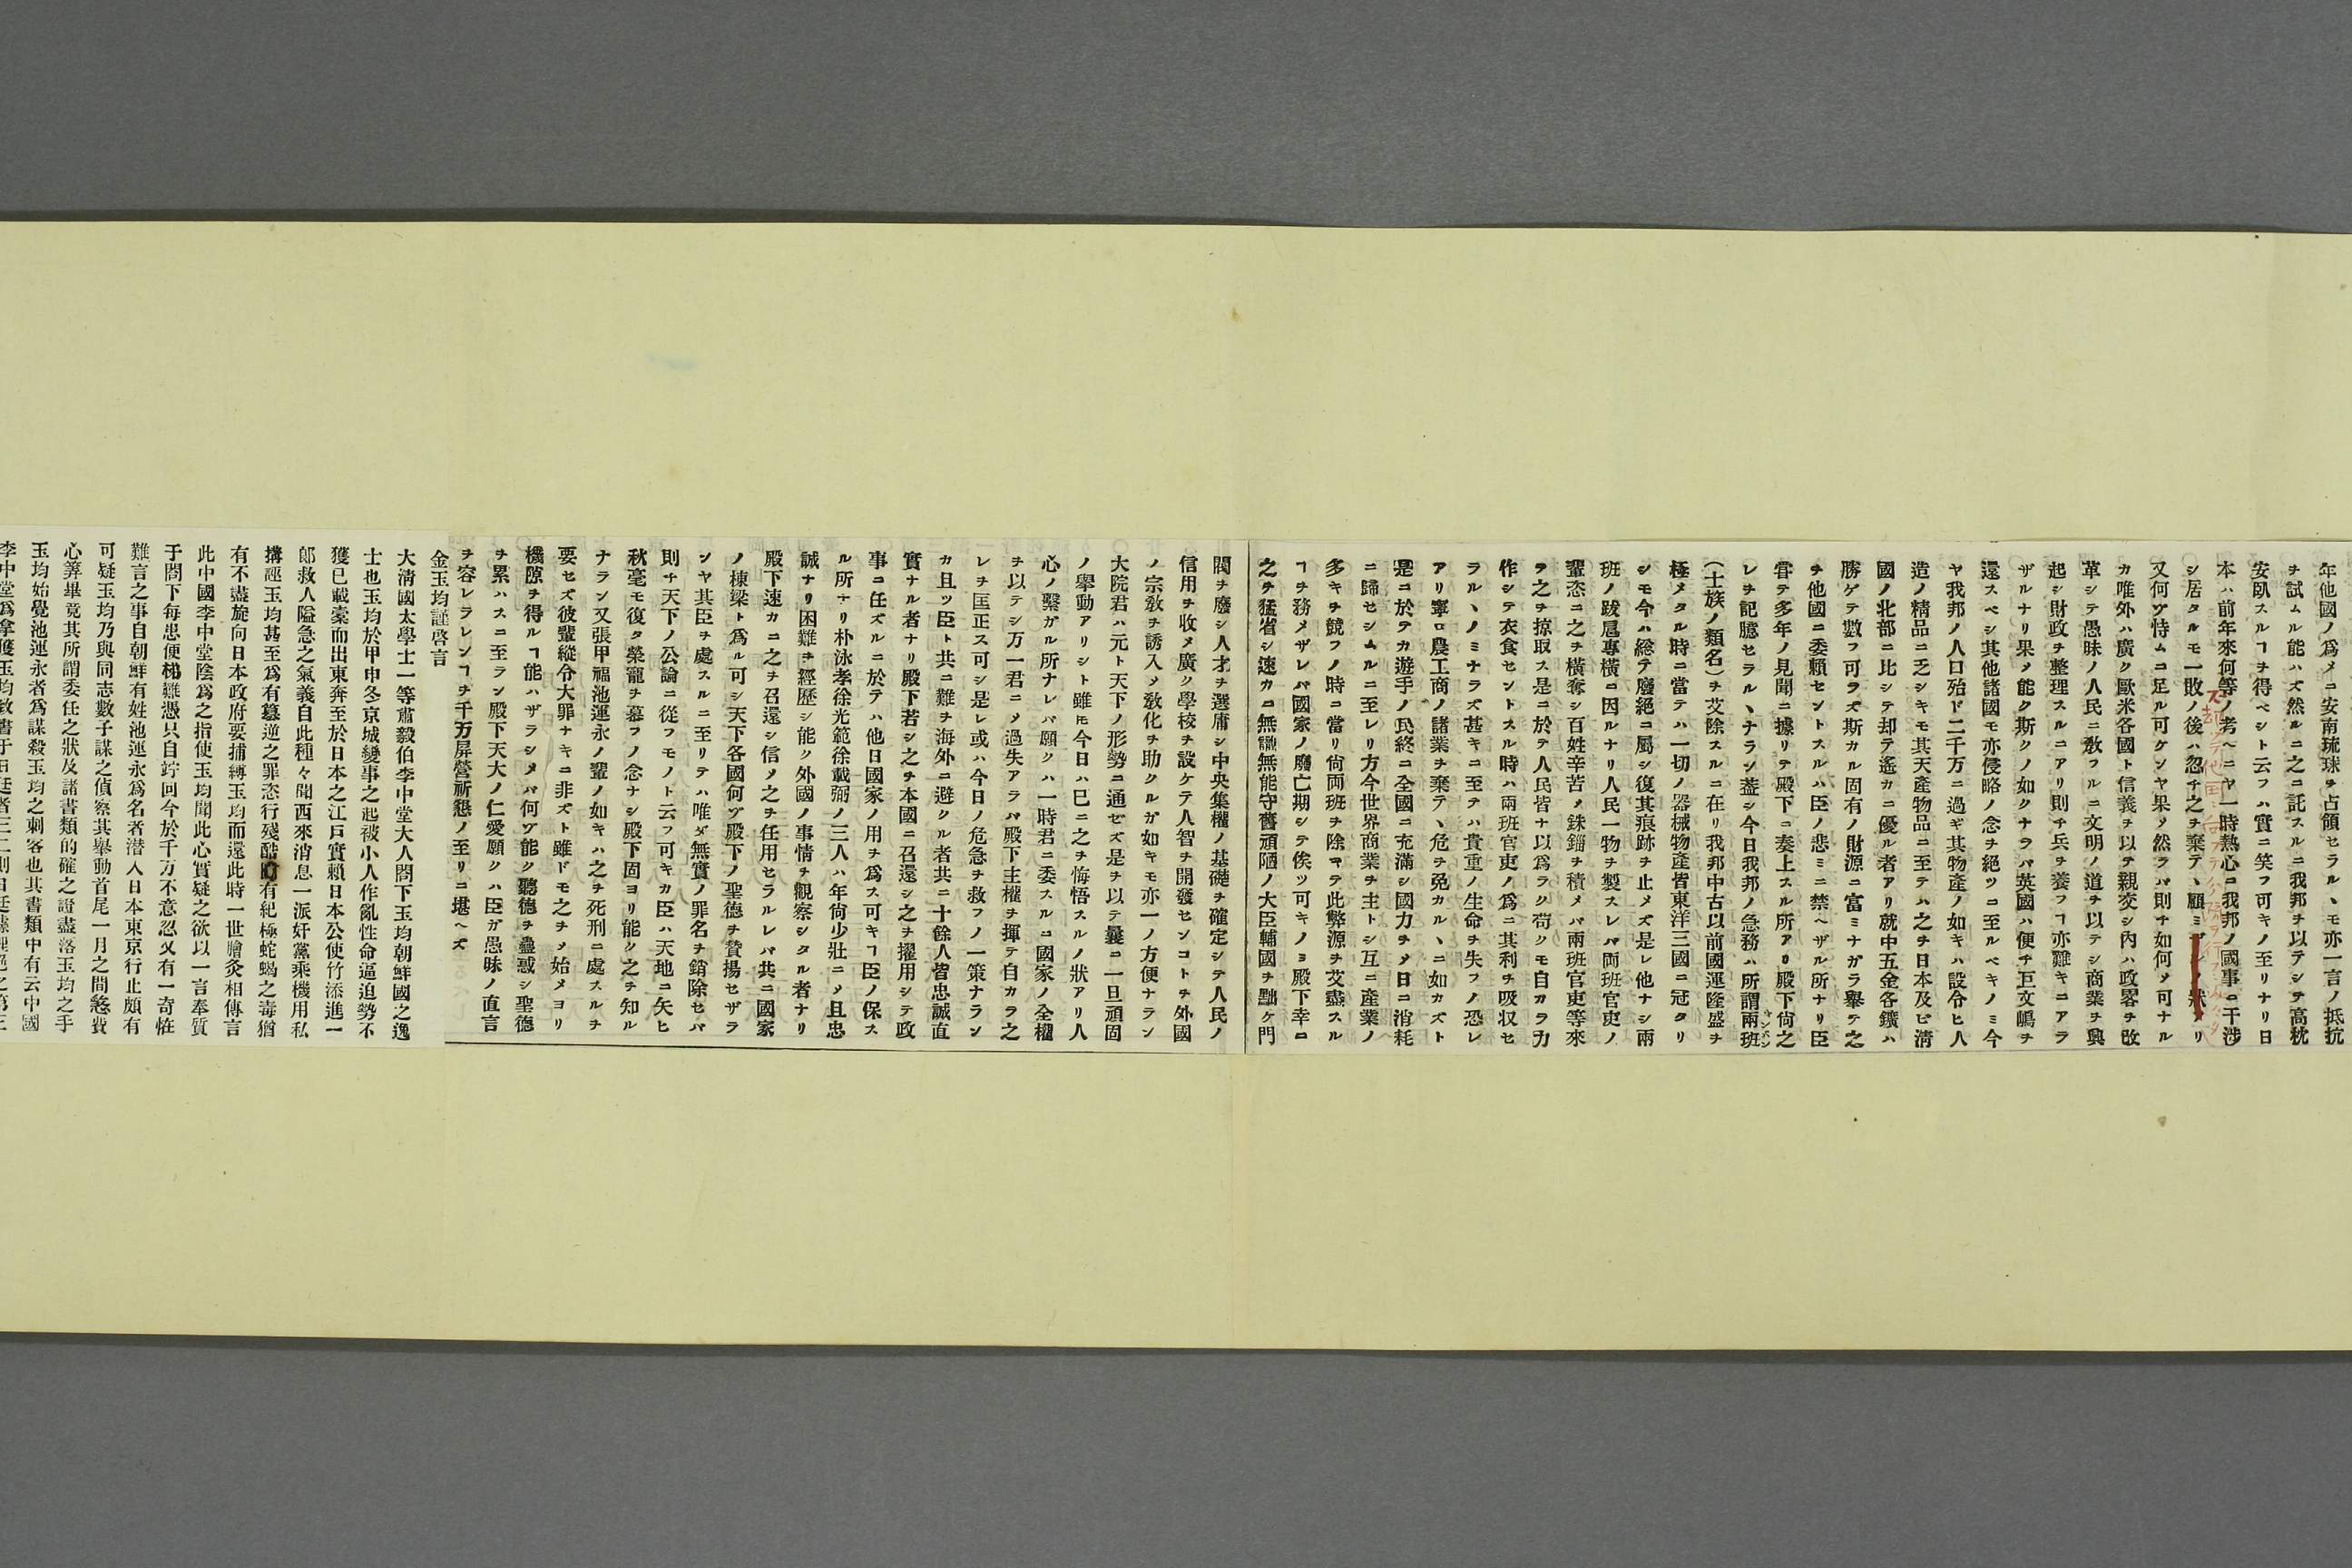 年他國ノ爲メニ安南琉球ヲ占領セラルヽモ亦一言ノ抵抗
ヲ試ムル能ハズ然ルニ之ニ託スルニ我邦ヲ以テシテ高枕
安臥スルヿヲ得ベシト云フハ實ニ笑フ可キノ至リナリ日
本ハ前年來何等ノ考ヘニヤ一時熱心ニ我邦ノ國事ニ干渉
シ居タルモ一敗ノ後ハ忽チ之ヲ棄テヽ顧ミ
又何ゾ恃ムニ足ル可ケンヤ果メ然ラバ則チ如何メ可ナル
カ唯外ハ廣ク歐米各國ト信義ヲ以テ親交シ内ハ政畧ヲ改
革シテ愚昧ノ人民ニ敎フルニ文明ノ道ヲ以テシ商業ヲ興
起シ財政ヲ整理スルニアリ則チ兵ヲ養フヿ亦難キニアラ
ザルナリ果メ能ク斯クノ如クナラバ英國ハ便チ巨文嶋ヲ
還スベシ其他諸國モ亦侵略ノ念ヲ絶ツニ至ルベキノミ今
ヤ我邦ノ人口殆ド二千万ニ過ギ其物產ノ如キハ設令ヒ人
造ノ精品ニ乏シキモ其天產物品ニ至テハ之ヲ日本及ビ清
國ノ北部ニ比シテ却テ遙カニ優ル者アリ就中五金各鑛ハ
勝ゲテ數フ可ラズ斯カル固有ノ財源ニ富ミナガラ擧テ之
ヲ他國ニ委賴セントスルハ臣ノ悲ミニ禁ヘザル所ナリ臣
甞テ多年ノ見聞ニ據リテ殿下ニ奏上スル所アリ殿下尙之
レヲ記臆セラルヽナラン蓋シ今日我邦ノ急務ハ所謂兩班
(士族ノ類名)ヲ芟除スルニ在リ我邦中古以前國運隆盛ヲ
極メタル時ニ當テハ一切ノ器械物產皆東洋三國ニ冠タリ
シモ今ハ総テ廢絕ニ屬シ復其痕跡ヲ止メズ是レ他ナシ兩
班ノ跋扈專横ニ因ルナリ人民一物ヲ製スレバ兩班官吏ノ
輩恣ニ之ヲ横奪シ百姓辛苦メ銖錙ヲ積メバ兩班官吏等來
ヲ之ヲ掠取ス是ニ於テ人民皆ナ以爲ラク苟クモ自カラ力
作シテ衣食セントスル時ハ兩班官吏ノ爲ニ其利ヲ吸収セ
ラルヽノミナラズ甚キニ至テハ貴重ノ生命ヲ失フノ恐レ
アリ寧ロ農工商ノ諸業ヲ棄テヽ危ヲ免カルヽニ如カズト
是ニ於テカ遊手ノ民終ニ全國ニ充滿シ國力ヲメ日ニ消耗
ニ歸セシムルニ至レリ方今世界商業ヲ主トシ互ニ產業ノ
多キヲ競フノ時ニ當リ尙兩班ヲ除キテ此弊源ヲ芟盡スル
ヿヲ務メザレバ國家ノ廢亡期シテ俟ツ可キノミ殿下幸ニ
之ヲ猛省シ速カニ無識無能守舊頑陋ノ大臣輔國ヲ黜ケ門
閥ヲ廢シ人才ヲ選庸シ中央集權ノ基礎ヲ確定シテ人民ノ
信用ヲ收メ廣ク學校ヲ設ケテ人智ヲ開發センコトヲ外國
ノ宗敎ヲ誘入メ敎化ヲ助クルガ如キモ亦一ノ方便ナラン
大院君ハ元ト天下ノ形勢ニ通ゼズ是ヲ以テ曩ニ一旦頑固
ノ擧動アリシト雖モ今日ハ巳ニ之ヲ悔悟スルノ狀アリ人
心ノ繫ガル所ナレバ願クハ一時君ニ委スルニ國家ノ全權
ヲ以テシ万一君ニメ過失アラバ殿下主權ヲ揮テ自カラ之
レヲ匡正ス可シ是レ或ハ今日ノ危急ヲ救フノ一策ナラン
カ且ツ臣ト共ニ難ヲ海外ニ避クル者共ニ十餘人皆忠誠直
實ナル者ナリ殿下若シ之ヲ本國ニ召還シ之ヲ擢用シテ政
事ニ任ズルニ於テハ他日國家ノ用ヲ爲ス可キヿ臣ノ保ス
ル所ナリ朴泳孝徐光範徐載弼ノ三人ハ年尙少壯ニメ且忠
誠ナリ困難ヲ經歷シ能ク外國ノ事情ヲ觀察シタル者ナリ
殿下速カニ之ヲ召還シ信メ之ヲ任用セラルレバ共ニ國家
ノ棟梁ト爲ル可シ天下各國何ゾ殿下ノ聖德ヲ贊揚セザラ
ンヤ其臣ヲ處スルニ至リテハ唯ダ無實ノ罪名ヲ銷除セバ
則チ天下ノ公論ニ從フモノト云フ可キカ臣ハ天地ニ矢ヒ
秋毫モ復タ榮寵ヲ慕フノ念ナシ殿下固ヨリ能ク之ヲ知ル
ナラン又張甲福池運永ノ輩ノ如キハ之ヲ死刑ニ處スルヲ
要セズ彼輩縦令大罪ナキニ非ズト雖ドモ之ヲメ始メヨリ
機隙ヲ得ルヿ能ハザラシメバ何ゾ能ク聽德ヲ蠱惑シ聖德
ヲ累ハスニ至ラン殿下天大ノ仁愛願クハ臣ガ愚昧ノ直言
ヲ容レラレンヿヲ千万屏營祈懇ノ至リニ堪ヘズ
金玉均謹啓言
大清國太學士一等肅毅伯李中堂大人閤下玉均朝鮮國之逸
士也玉均於甲申冬京城變事之起被小人作亂性命逼迫勢不
獲已載橐而出東奔至於日本之江戶實賴日本公使竹添進一
郎救人隘急之氣義自此種々聞西來消息一派奸黨乘機用私
搆誣玉均甚至爲有簒逆之罪恣行殘酷有紀極蛇蝎之毒猶
有不盡旋向日本政府要捕縛玉均而還此時一世膾炙相傳言
此中國李中堂陰爲之指使玉均聞此心實疑之欲以一言奉質
于閤下每患便梯難憑只自竚回今於千万不意忽又有一奇恠
難言之事自朝鮮有姓池運永爲名者潜入日本東京行止頗有
可疑玉均乃與同志數子謀之偵察其擧動首尾一月之間慾費
心筭畢竟其所謂委任之狀及諸書類的確之證盡落玉均之手
玉均始覺池運永者爲謀殺玉均之刺客也其書類中有云中國